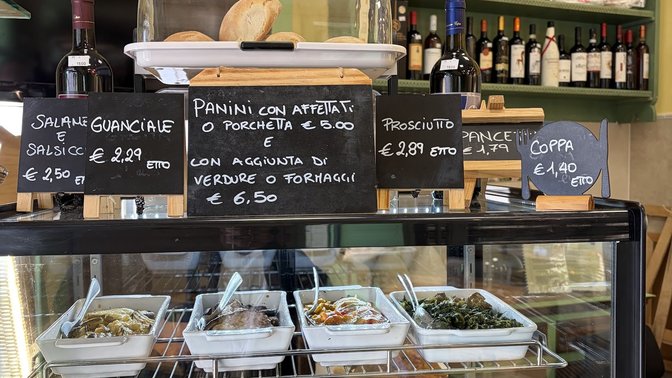 SALAME
E
SALSICC
€ 2,50 ETTO
GUANCIALE
€ 2,29 ETTO
PANINI CON AFFETTATI
O PORCHETTA € 5.00
E
CON AGGIUNTA DI
VERDURE O FORMAGGI
€ 6,50
PROSCIUTTO
€ 2,89 ETTO
PANCET
€ 1,79
COPPA
€ 1,40 ETTO